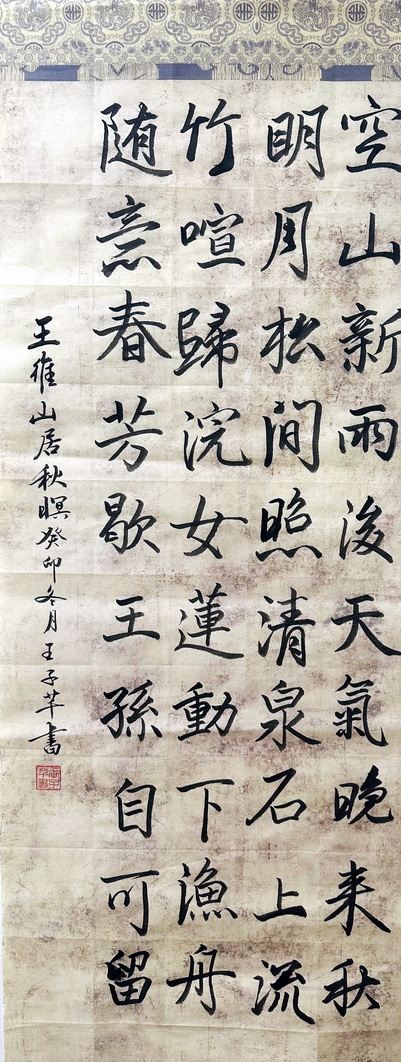 空山新雨後天氣晚来秋
明月松间照清泉石上流
竹喧歸浣女蓮動下漁舟
随意春芳歇王孫自可留
王維山居秋暝癸卯冬月王子芊書